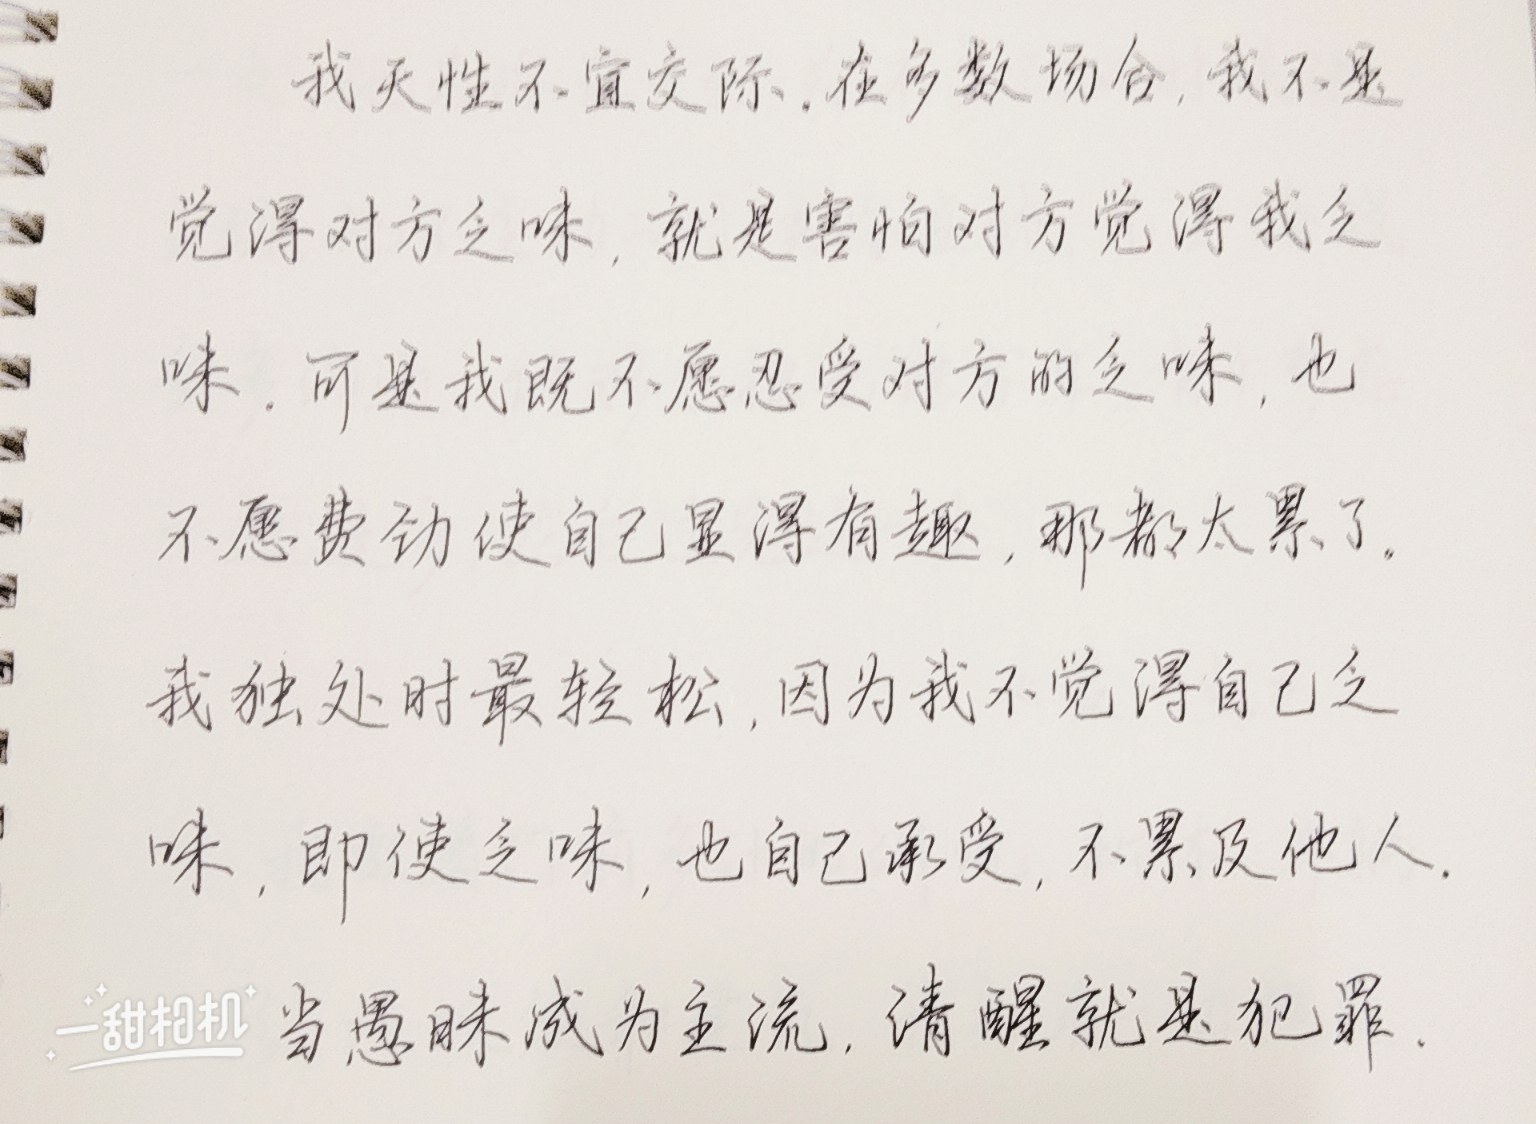 我天性不宜交际.在多数场合,我不是
觉得对方乏味,就是害怕对方觉得我乏
味.可是我既不愿忍受对方的乏味,也
不愿费劲使自己显得有趣,那都太累了.
我独处时最轻松,因为我不觉得自己乏
味,即使乏味,也自己承受,不累及他人.
当愚昧成为主流,清醒就是犯罪.
一甜相机